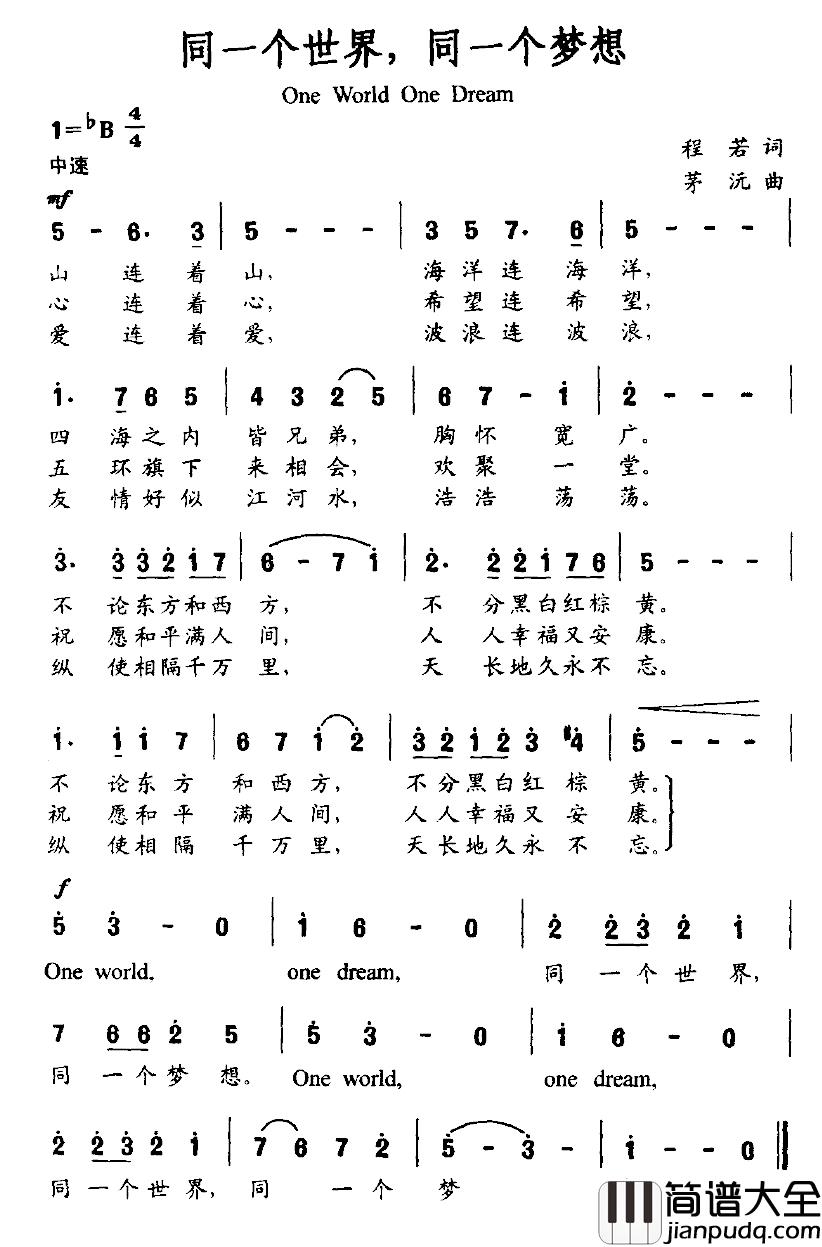 同一个世界，同一个梦想
One World One Dream
1=♭B 4/4
中速
程 若 词
茅 沅 曲
mf
5 - 6. 3 | 5 - - - | 3 5 7. 6 | 5 - - - |
山 连 着 山, 海 洋 连 海 洋,
心 连 着 心, 希 望 连 希 望,
爱 连 着 爱, 波 浪 连 波 浪,
1̇. 7 6 5 | 4 3 2 5 | 6 7 - 1̇ | 2̇ - - - |
四 海 之 内 皆 兄 弟, 胸 怀 宽 广。
五 环 旗 下 来 相 会, 欢 聚 一 堂。
友 情 好 似 江 河 水, 浩 浩 荡 荡。
3̇. 3̇ 3̇ 2̇ 1̇ 7 | 6 - 7 1̇ | 2̇. 2̇ 2̇ 1̇ 7 6 | 5 - - - |
不 论东方和西 方, 不 分黑白红棕 黄。
祝 愿和平满人 间, 人 人幸福又安 康。
纵 使相隔千万 里, 天 长地久永不 忘。
1̇. 1̇ 1̇ 7 | 6 7 1̇ 2̇ | 3̇ 2̇ 1̇ 2̇ 3̇ #4̇ | 5̇ - - - |
不 论东 方 和西 方, 不分黑白红 棕 黄。
祝 愿和平 满人间, 人人幸福又 安 康。
纵 使相隔 千万里, 天长地久永 不 忘。
f
5̇ 3̇ - 0 | 1̇ 6 - 0 | 2̇ 2̇ 3̇ 2̇ 1̇ |
One world, one dream, 同 一 个 世 界,
7 6 6 2̇ 5 | 5̇ 3̇ - 0 | 1̇ 6 - 0 |
同 一个梦 想。 One world, one dream,
2̇ 2̇ 3̇ 2̇ 1̇ | 7 6 7 2̇ | 5̇ - 3̇ - | 1̇ - - 0 ‖
同 一个世 界, 同 一 个 梦
简谱大全
jianpudq.com